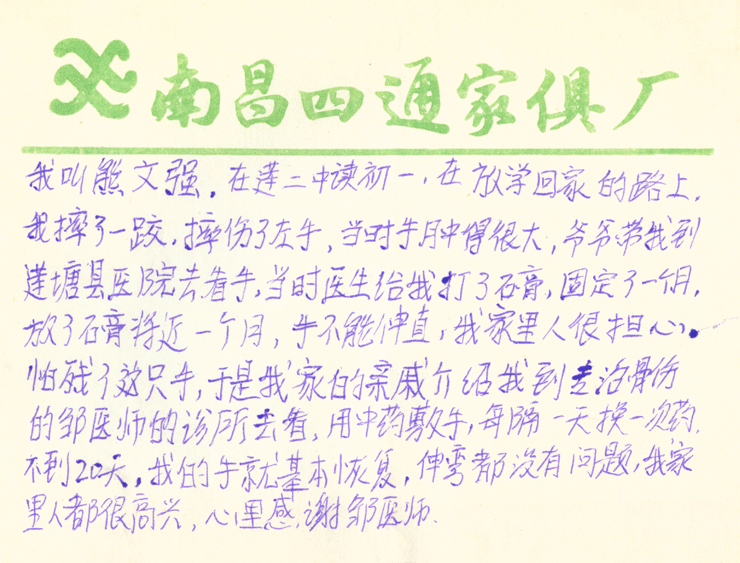 南昌四通家俱厂
我叫熊文强，在莲二中读初一，在放学回家的路上，
我摔了一跤，摔伤了左手，当时手肿得很大，爷爷带我到
莲塘县医院去看手，当时医生给我打了石膏，固定了一个月，
放了石膏将近一个月，手不能伸直，我家里人很担心。
怕残了这只手，于是我家的亲戚介绍我到专治骨伤
的邹医师的诊所去看，用中药敷手，每隔一天换一次药，
不到20天，我的手就基本恢复，伸弯都没有问题，我家
里人都很高兴，心里感谢邹医师.